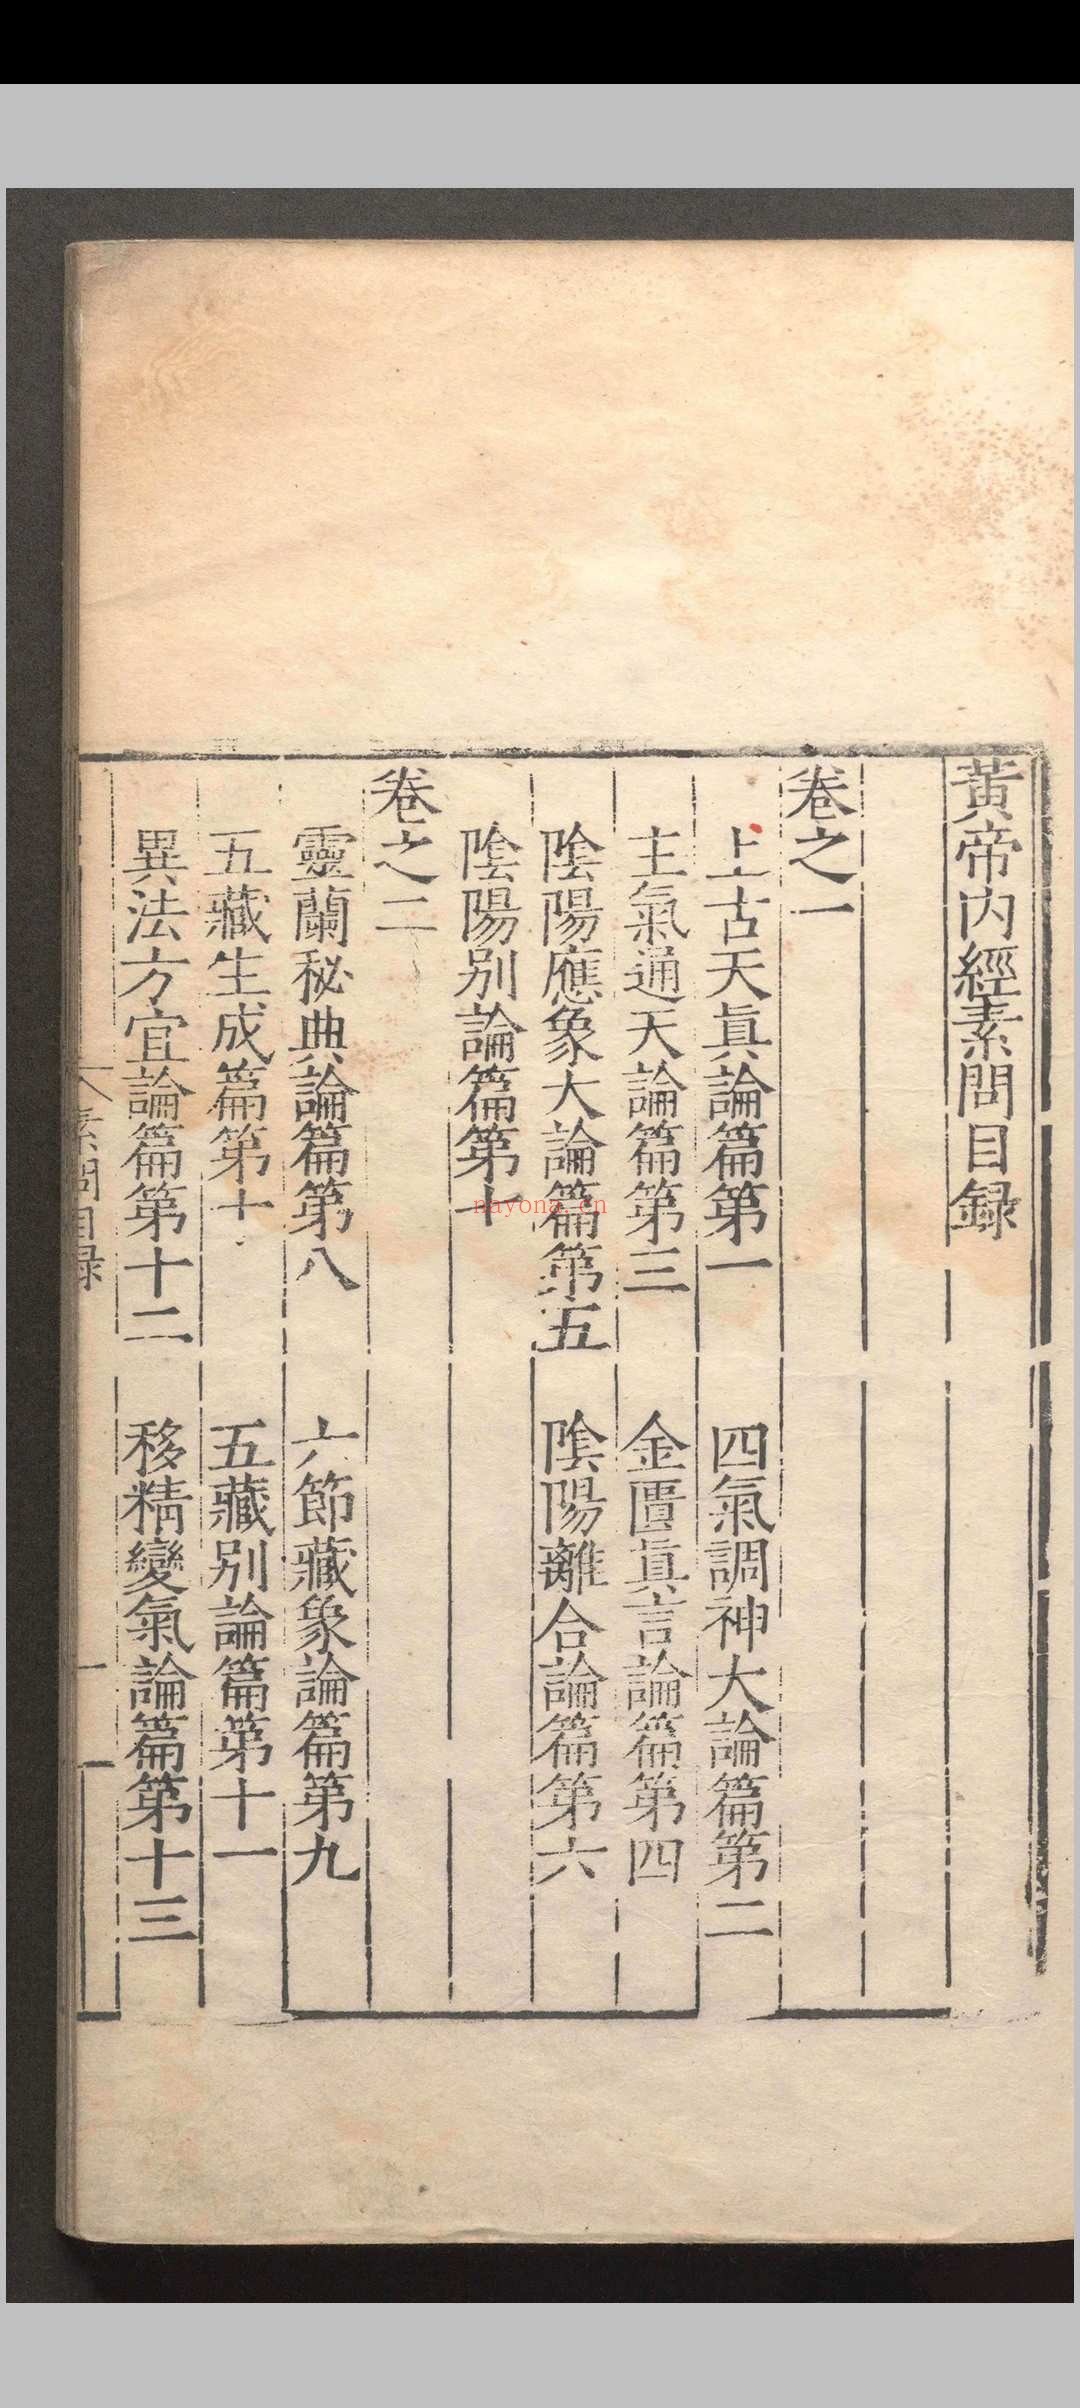 黃帝内經素問目録
卷之一
上古天眞論篇第一　四氣調神大論篇第二
主氣通天論篇第三　金匱眞言論篇第四
陰陽應象大論篇第五　陰陽離合論篇第六
陰陽别論篇第十
卷之二
靈蘭秘典論篇第八　六節藏象論篇第九
五藏生成篇第十　五藏别論篇第十一
異法方宜論篇第十二　移精變氣論篇第十三
素問目録
nayona.cn